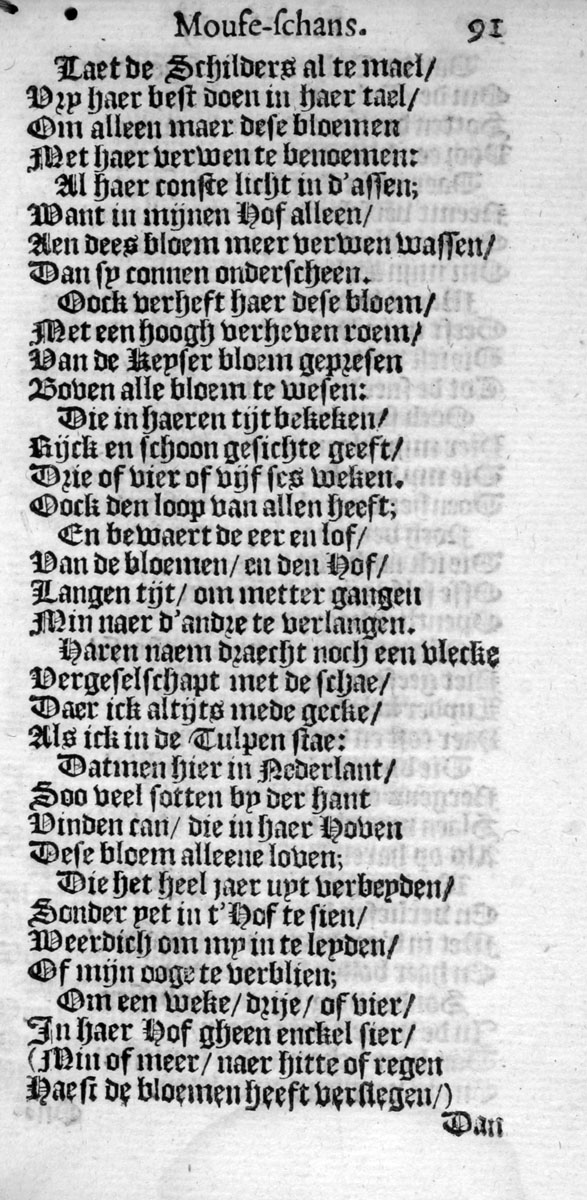 Mouse-schans. 91
Laet de Schilders al te mael/
Vry haer best doen in haer tael/
Om alleen maer dese bloemen
Met haer verwen te benoemen:
Al haer conste licht in d'assen;
Want in mijnen Hof alleen/
Aen dees bloem meer verwen wassen/
Dan sy connen onderscheen.
Oock verheft haer dese bloem/
Met een hoogh verheven roem/
Van de Keyser bloem gepresen
Boven alle bloem te wesen:
Die in haeren tijt bekeken/
Rijck en schoon gesichte geeft/
Drie of vier of vijf ses weken.
Oock den loop van allen heeft;
En bewaert de eer en lof/
Van de bloemen/ en den Hof/
Langen tijt/ om metter gangen
Min naer d'andre te verlangen.
Haren naem draecht noch een vlecke
Vergeselschapt met de schae/
Daer ick altijts mede gecke/
Als ick in de Tulpen stae:
Datmen hier in Nederlant/
Soo veel sotten by der hant
Vinden can/ die in haer Hoven
Dese bloem alleene loven;
Die het heel jaer uyt verbeyden/
Sonder yet in t'Hof te sien/
Weerdich om my in te leyden/
Of mijn ooge te verblien;
Om een weke/ drije/ of vier/
In haer Hof gheen enckel sier/
(Min of meer/ naer hitte of regen
Haest de bloemen heeft verslegen/)
Dan